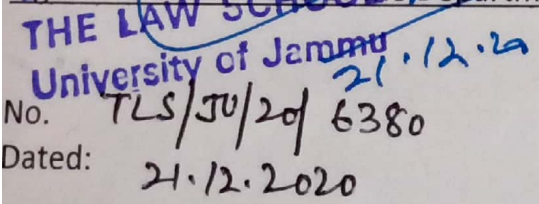 THE LAW SCHOOL
University of Jammu
21.12.20
No. TLS/JU/20/6380
Dated: 21.12.2020